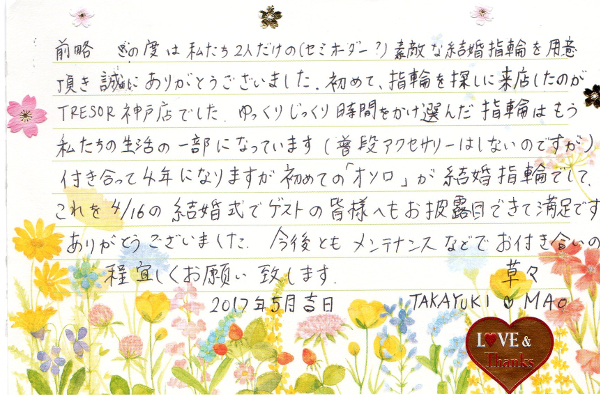 前略 この度は私たち2人だけの(セミオーダー?)素敵な結婚指輪を用意
頂き誠にありがとうございました. 初めて、指輪を探しに来店したのが
TRESOR 神戸店でした. ゆっくりじっくり時間をかけ選んだ指輪はもう
私たちの生活の一部になっています(普段アクセサリーはしないのですが)
付き合って4年になりますが初めての「オソロ」が結婚指輪でして、
これを4/16の結婚式でゲストの皆様へもお披露目できて満足です
ありがとうございました. 今後ともメンテナンスなどでお付き合いの
程宜しくお願い致します. 草々
2017年5月吉日 TAKAYUKI ♡ MAO
LOVE &
Thanks